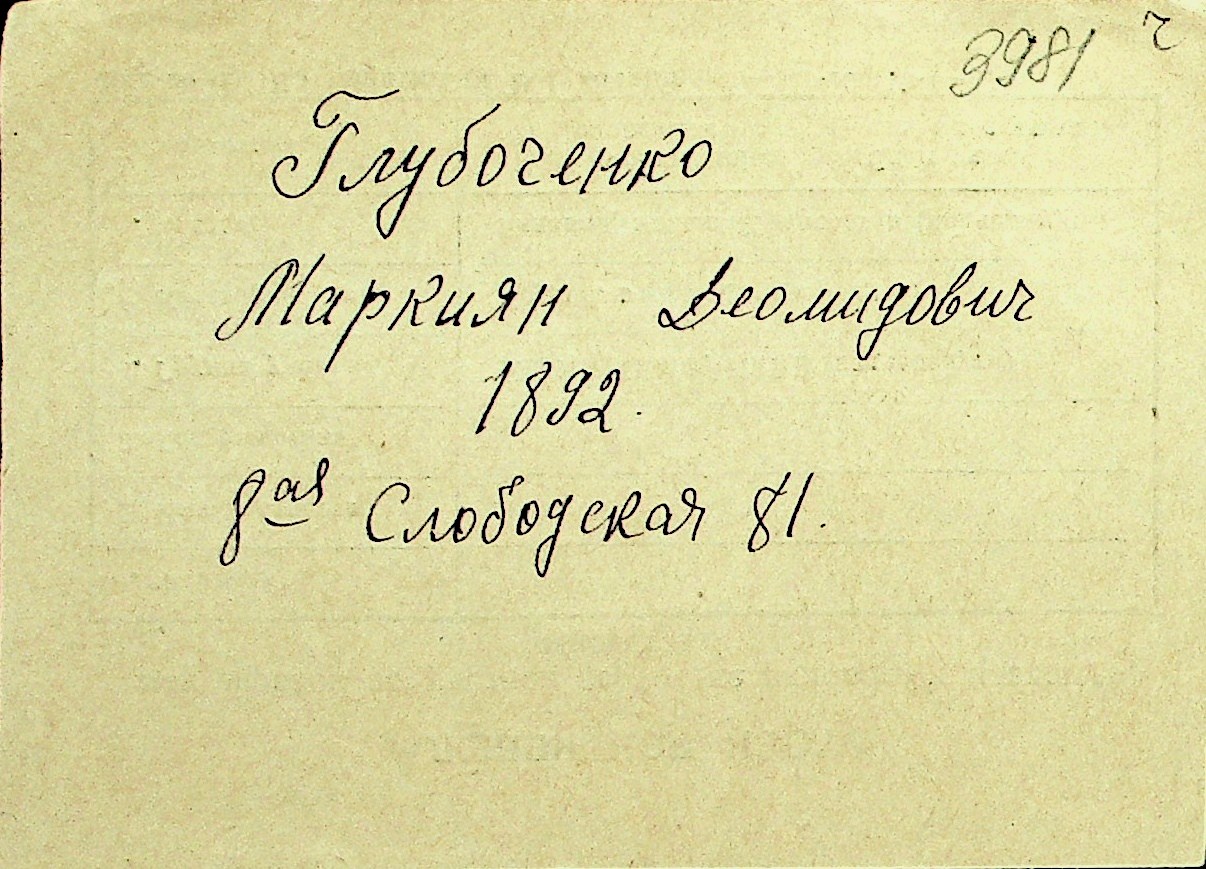 3981 ч
Глубоченко
Маркиян Деомидович
1892.
8ая Слободская 81.